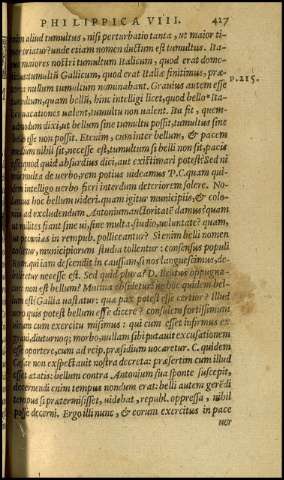 PHILIPPICA VIII. 427
enim aliud tumultus, nisi perturbatio tanta, ut maior ti-
mor oriatur? unde etiam nomen ductum est tumultus. Ita-
maiores nostri tumultum Italicum, quod erat dome-
tumultum Gallicum, quod erat Italiæ finitimus, præ-
nullum tumultum nominabant. Grauius autem esse
tumultum, quam bellum, hinc intelligi licet, quod bello Ita-
p. 215.
uacationes ualent, tumultu non ualent. Ita fit, quem-
dixi, ut bellum sine tumultu possit, tumultus sine
esse non possit. Etenim, cum inter bellum, & pacem
nihil sit, necesse est, tumultum si belli non sit, pacis
quo quid absurdius dici, aut existimari potest? Sed ni
multa de uerbo, rem potius uideamus P.C. quam qui-
intelligo uerbo fieri interdum deteriorem solere. No-
hoc bellum uideri. quam igitur municipiis, & colo-
ad excludendum Antonium auctoritatē damus? quam
ut milites fiant sine ui, sine multa studio, uoluntate? quam,
ut pecunias in rempub. polliceantur? Si enim belli nomen
municipiorum studia tollentur: consensus populi
qui iam descendit in caussam, si nos languescimus, de-
necesse est. Sed quid plura? D. Brutus oppugna-
non est bellum? Mutina obsidetur: ne hoc quidem bel-
est? Gallia uastatur: quæ pax potest esse certior? Illud
quis potest bellum esse dicere? consulem fortissimum
cum exercitu misimus: qui cum esset infirmus ex
diuturnoq; morbo, nullam sibi putauit excusationem
oportere, cum ad reip. præsidium uocaretur. C. quidem
non exspectauit nostra decreta: præsertim cum illud
ætatis: bellum contra Antonium sua sponte suscepit,
decernendi enim tempus nondum erat: belli autem gerēdi
tempus si prætermisisset, uidebat, republ. oppressa, nihil
posse decerni. Ergo illi nunc, & eorum exercitus in pace
uer